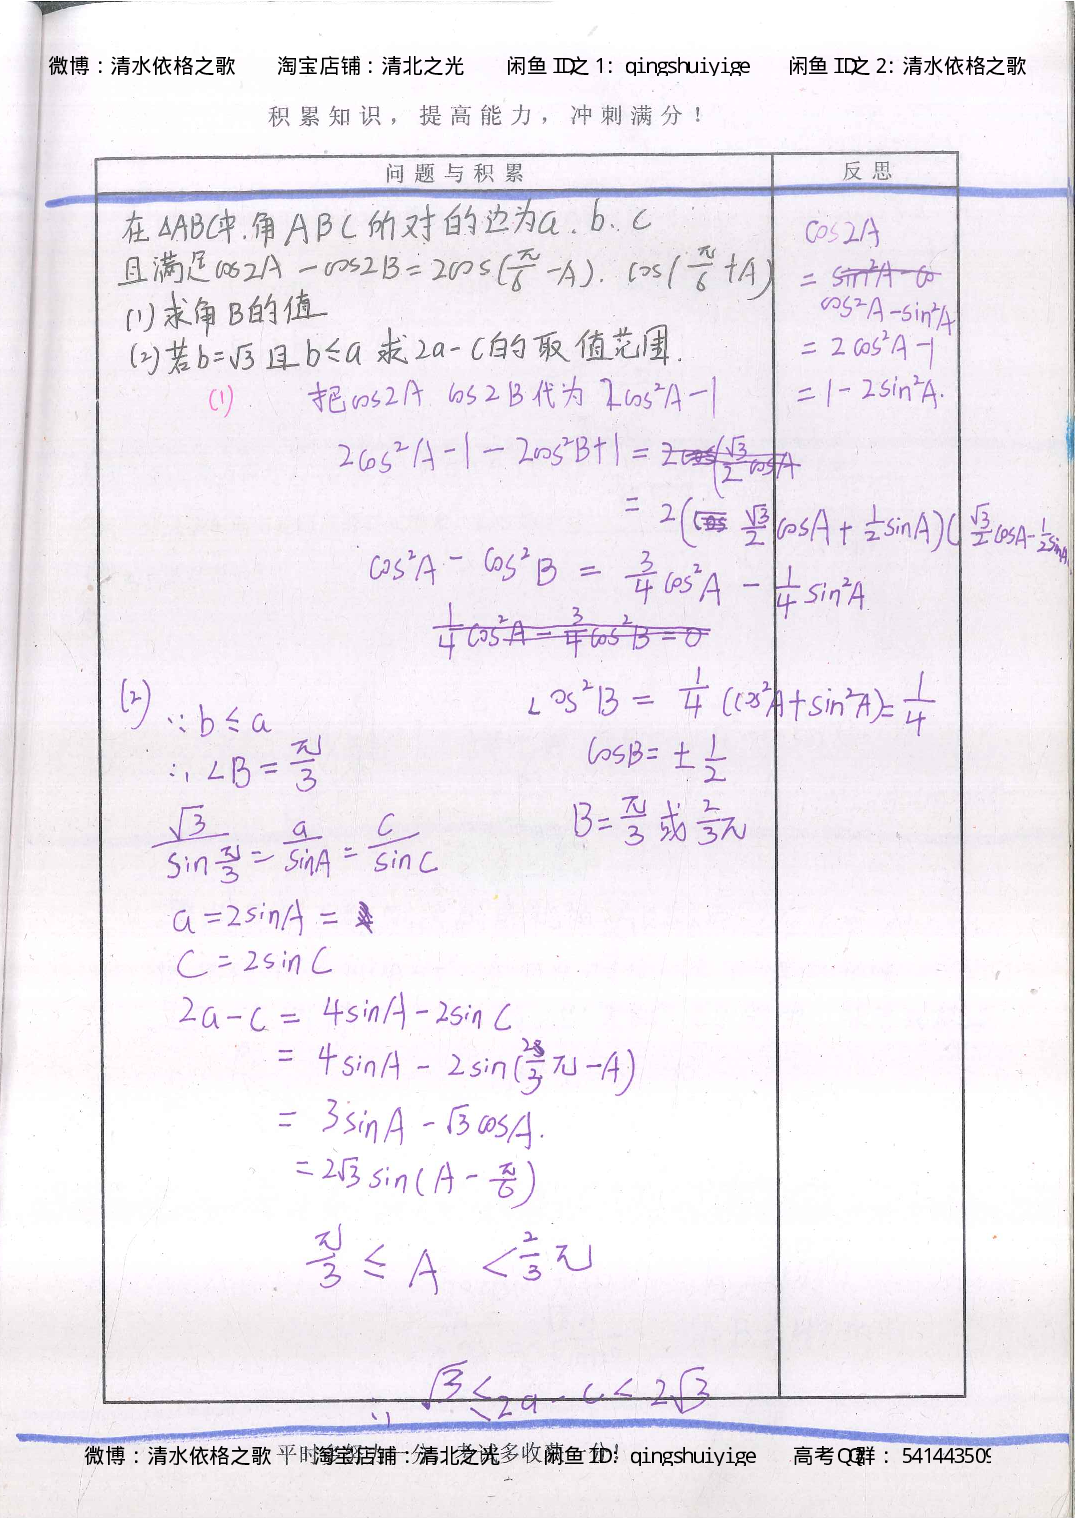 微博：清水依格之歌 淘宝店铺：清北之光 闲鱼ID之1: qingshuiyige 闲鱼ID之2: 清水依格之歌
积累知识，提高能力，冲刺满分！
问题与积累
反思
在△ABC中.角ABC的对的边为a.b.c
且满足cos2A-cos2B=2cos(π/6-A).cos(π/6+A)
(1)求角B的值
(2)若b=√3且b≤a求2a-c的取值范围.
(1) 把cos2A cos2B代为2cos²A-1
2cos²A-1-2cos²B+1=2cos(√3/2 cosA
=2(cos √3/2 cosA+1/2 sinA)(√3/2 cosA-1/2 sinA
cos²A-cos²B=3/4 cos²A-1/4 sin²A
1/4 cos²A-3/4 cos²B=0
cos²B=1/4(cos²A+sin²A)=1/4
cosB=±1/2
B=π/3或2/3π
(2)
∵b≤a
∴∠B=π/3
√3/sinπ/3=a/sinA=c/sinC
a=2sinA=
c=2sinC
2a-c=4sinA-2sinC
=4sinA-2sin(2/3π-A)
=3sinA-√3cosA.
=2√3sin(A-π/6)
π/3≤A<2/3π
∴√3≤2a-c<2√3
cos2A
=sin²A-co
cos²A-sin²A
=2cos²A-1
=1-2sin²A.
微博：清水依格之歌 淘宝店铺：清北之光 闲鱼ID: qingshuiyige 高考QQ群：541443509